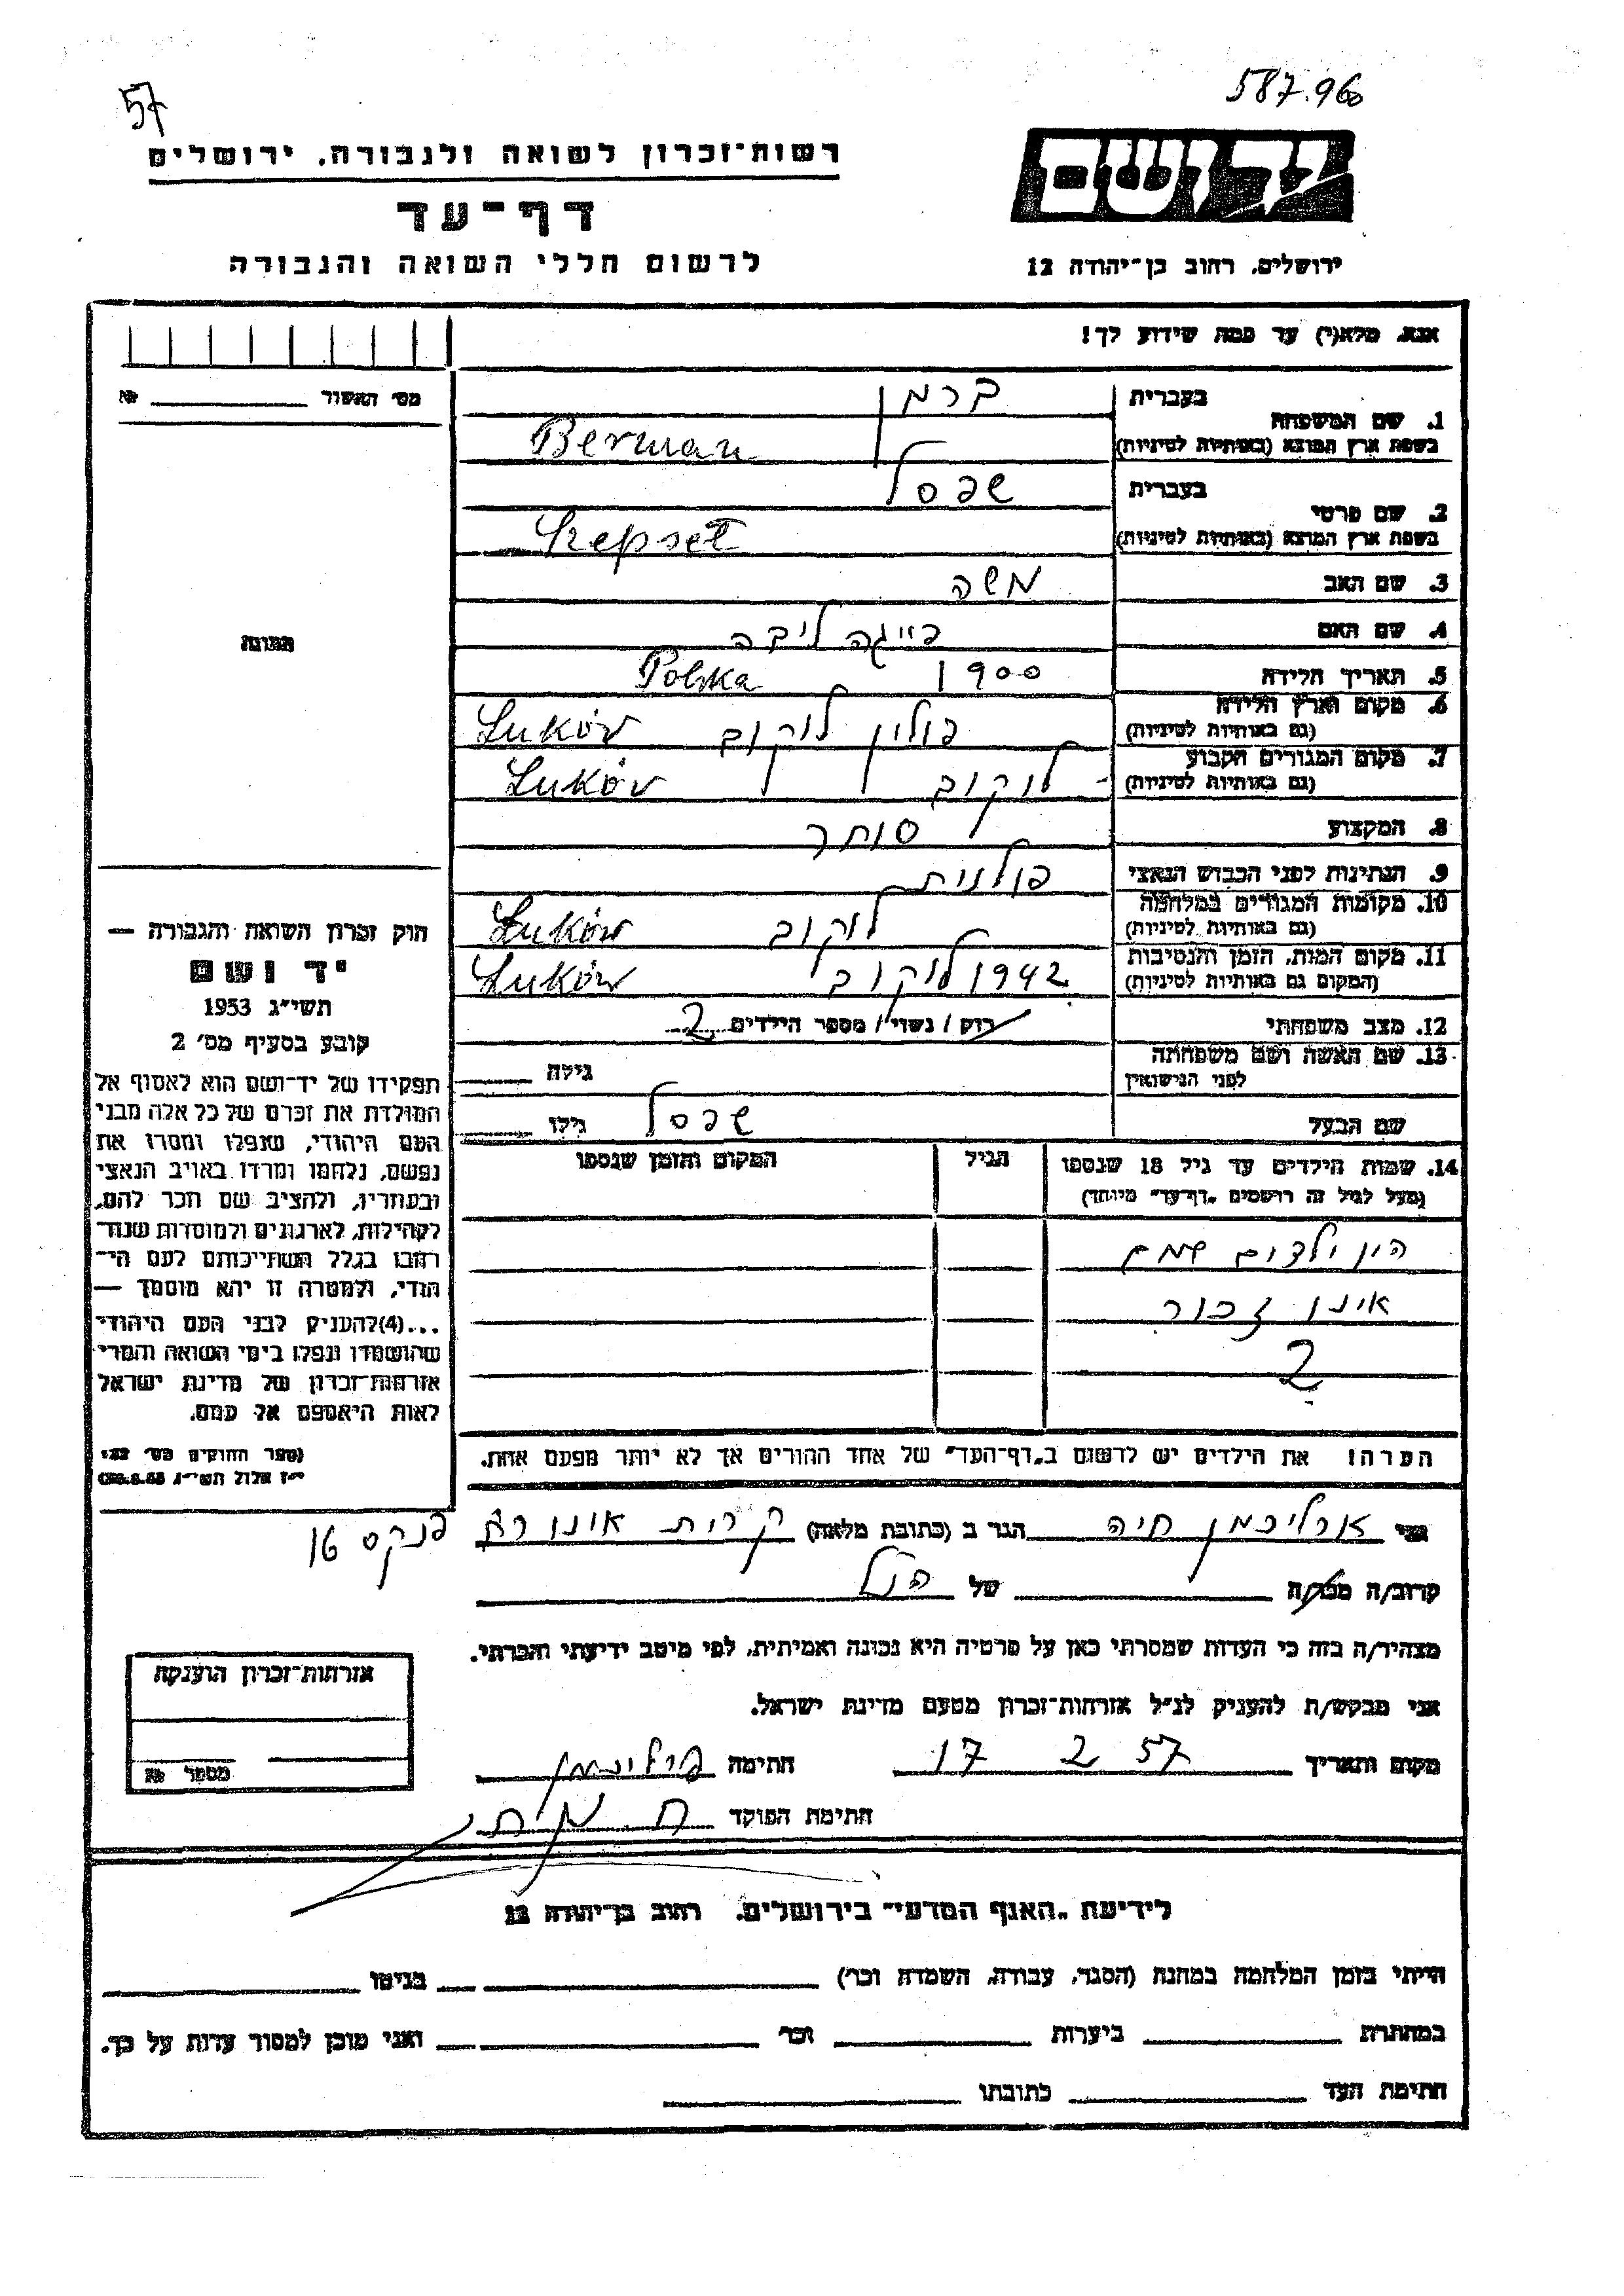 57
587.960
רשות־זכרון לשואה ולגבורה. ירושלים
דף־עד
לרשום חללי השואה והגבורה
יד ושם
ירושלים, רחוב בן־יהודה 12
אנא, מלא(י) עד כמה שידוע לך!
מס׳ האשור №
1. שם המשפחה
בעברית ברמן
בשפת ארץ המוצא (באותיות לטיניות) Berman
2. שם פרטי
בעברית שפסל
בשפת ארץ המוצא (באותיות לטיניות) Szepsel
3. שם האב משה
4. שם האם פייגה ליבה
5. תאריך הלידה 1900 Polska
6. מקום וארץ הלידה פולין לוקוב Łuków
(גם באותיות לטיניות)
7. מקום המגורים הקבוע לוקוב Łuków
(גם באותיות לטיניות)
8. המקצוע סוחר
9. הנתינות לפני הכבוש הנאצי פולנית
10. מקומות המגורים במלחמה לוקוב Łuków
(גם באותיות לטיניות)
11. מקום המות, הזמן והנסיבות 1942 לוקוב Łuków
(המקום גם באותיות לטיניות)
12. מצב משפחתי רוק / נשוי / מספר הילדים 2
13. שם האשה ושם משפחתה
לפני הנישואין גילה
שם הבעל שפסל גילו
14. שמות הילדים עד גיל 18 שנספו הגיל המקום והזמן שנספו
(מעל לגיל זה רושמים „דף־עד״ מיוחד)
היו ילדים שמם
אינו זכור
2
הערה! את הילדים יש לרשום ב„דף־העד״ של אחד ההורים אך לא יותר מפעם אחת.
תמונה
חוק זכרון השואה והגבורה —
יד ושם
תשי״ג 1953
קובע בסעיף מס׳ 2
תפקידו של יד־ושם הוא לאסוף אל
המולדת את זכרם של כל אלה מבני
העם היהודי, שנפלו ומסרו את
נפשם, נלחמו ומרדו באויב הנאצי
ובעוזריו, ולהציב שם וזכר להם,
לקהילות, לארגונים ולמוסדות שנח־
רבו בגלל השתייכותם לעם הי־
הודי, ולמטרה זו יהא מוסמך —
...(4)להעניק לבני העם היהודי
שהושמדו ונפלו בימי השואה והמרי
אזרחות־זכרון של מדינת ישראל
לאות היאספם אל עמם.
(ספר החוקים מס׳ 132
י״ז אלול תשי״ג
אני חיה הגר ב (כתובת מלאה) קרית אונו
פנקס 16
קרוב/ה מכר/ה של הנ״ל
מצהיר/ה בזה כי העדות שמסרתי כאן על פרטיה היא נכונה ואמיתית, לפי מיטב ידיעתי והכרתי.
אני מבקש/ת להעניק לנ״ל אזרחות־זכרון מטעם מדינת ישראל.
מקום ותאריך 17 2 57 חתימה
חתימת הפוקד
אזרחות־זכרון הוענקה
מספר №
לידיעת „האגף המדעי״ בירושלים. רחוב בן־יהודה 12
הייתי בזמן המלחמה במחנה (הסגר, עבודה, השמדה וכו׳) בגיטו
במחתרת ביערות וכו׳ ואני מוכן למסור עדות על כך.
חתימת העד כתובתו